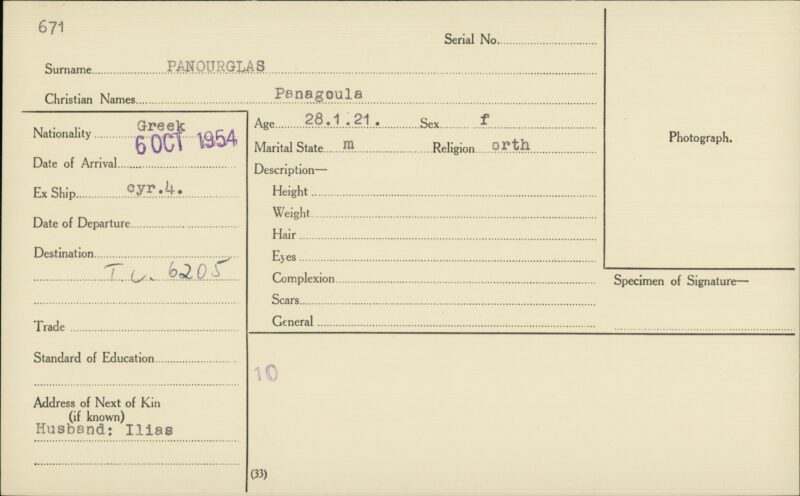 671
Serial No.
Surname PANOURGLAS
Christian Names Panagoula
Nationality Greek
6 OCT 1954
Date of Arrival
Ex Ship cyr.4.
Date of Departure
Destination
T.V. 6205
Trade
Standard of Education
Address of Next of Kin
(if known)
Husband: Ilias
Age 28.1.21. Sex f
Marital State m Religion orth
Description—
Height
Weight
Hair
Eyes
Complexion
Scars
General
Photograph.
Specimen of Signature—
10
(33)